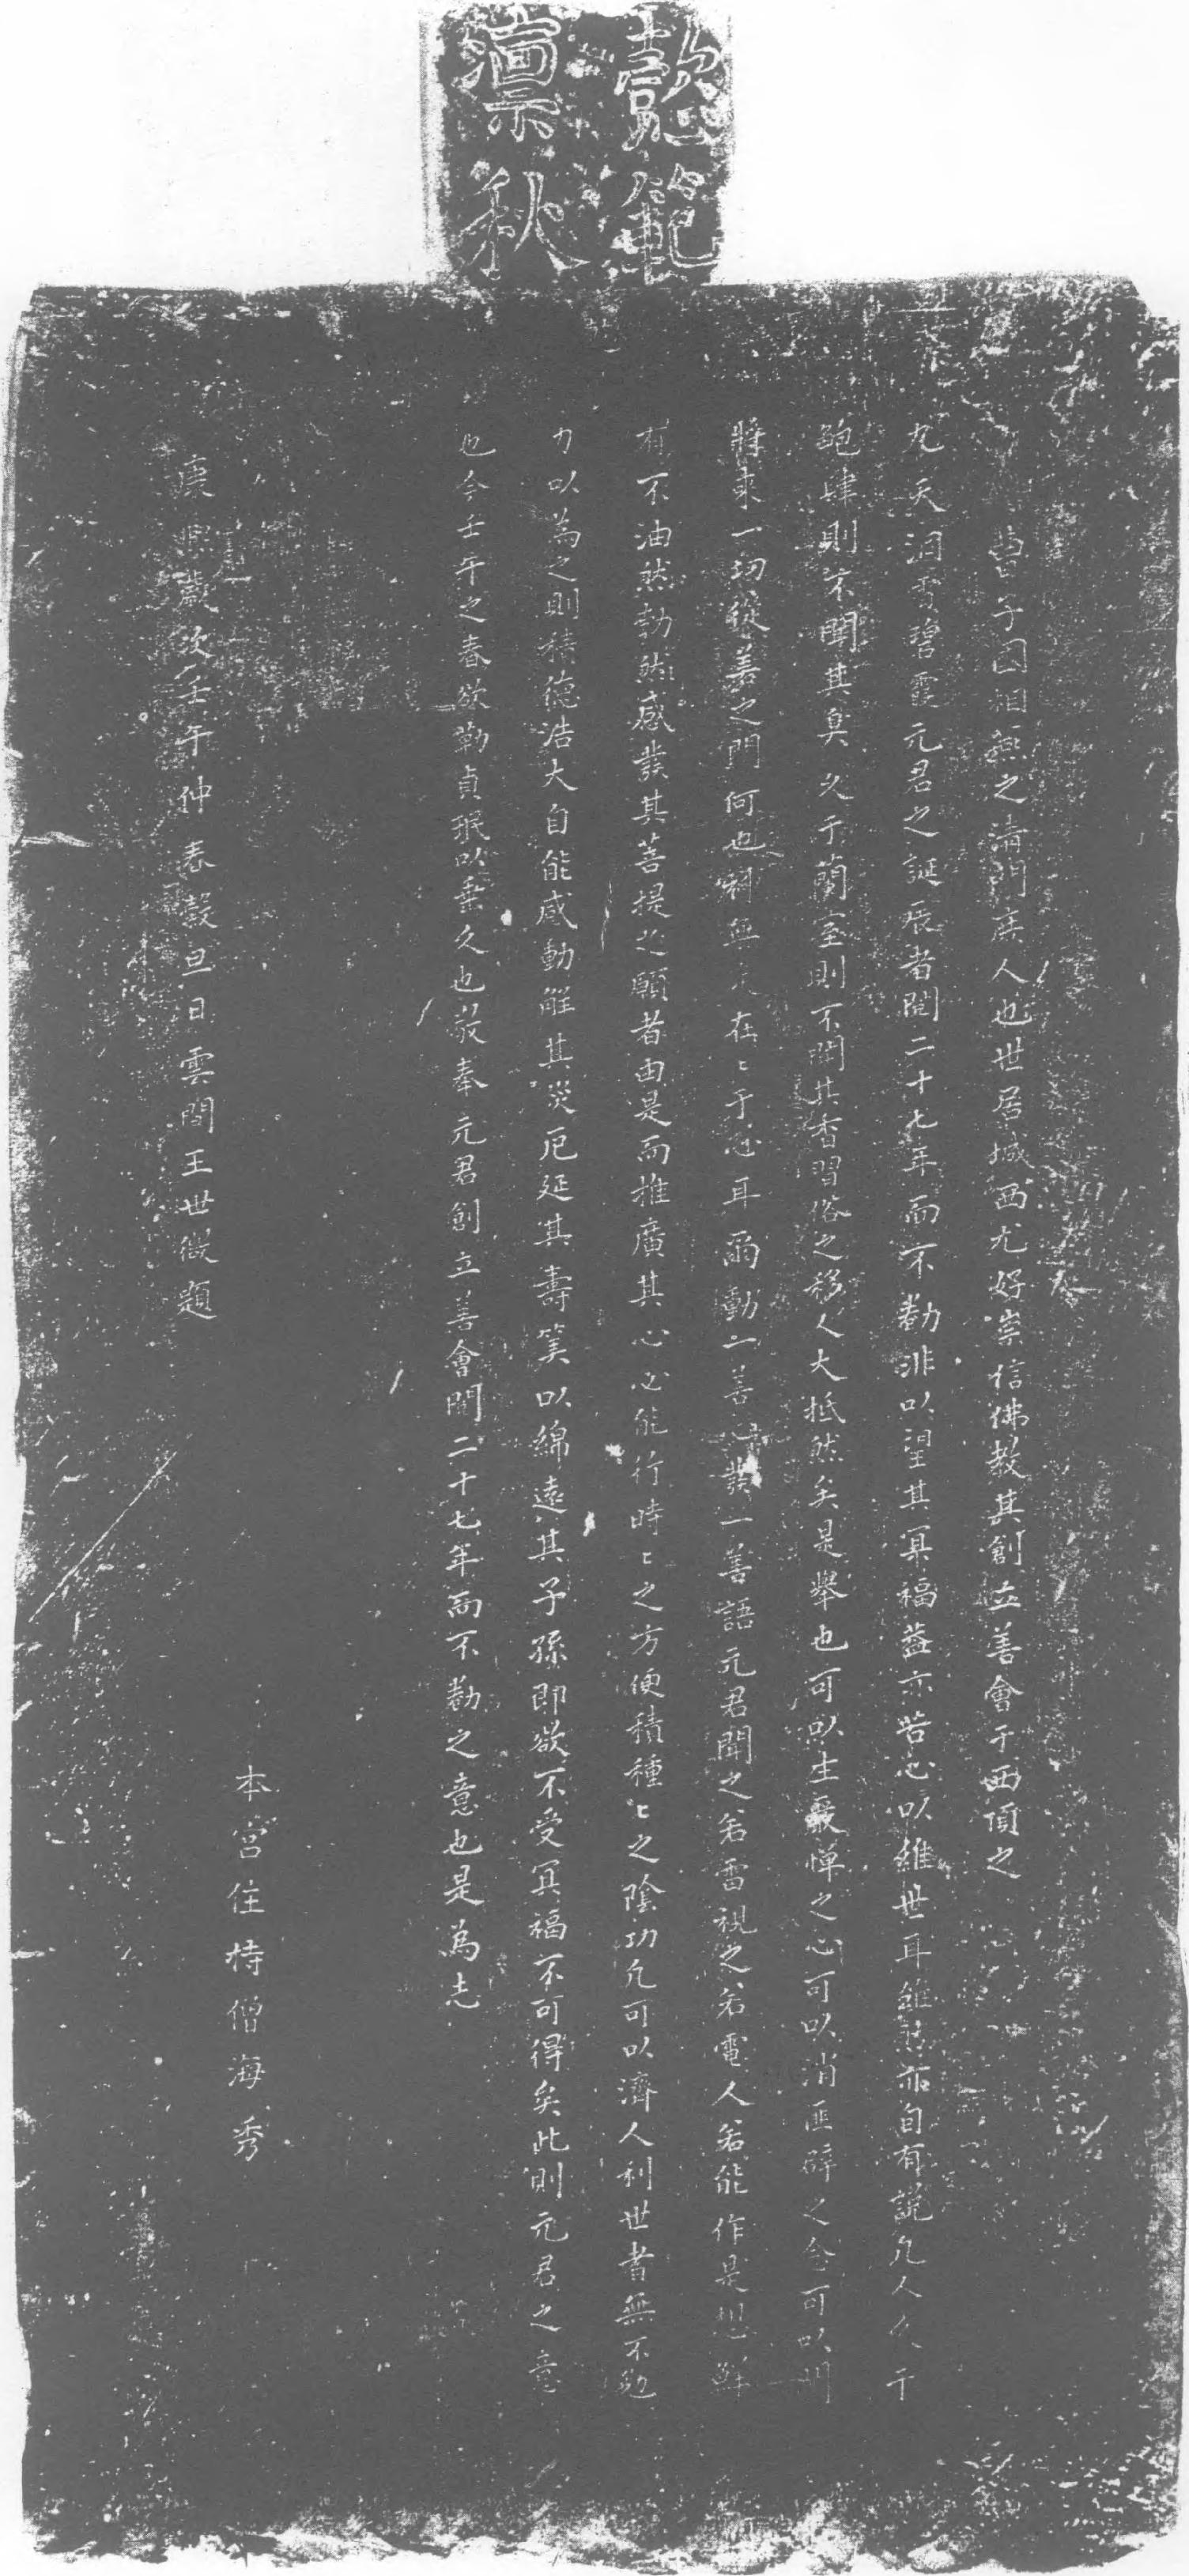 懿範
禀秋
曹子國相燕之清門庶人也世居城西尤好崇信佛教其創立善會于西頂之
九天洞雲碧霞元君之誕辰者閱二十七年而不勌非以望其冥福益亦苦心以維世耳雖然亦自有說凡人久于
鮑肆則不聞其臭久于蘭室則不聞其香習俗之移人大抵然矣是舉也可以生嚴憚之心可以消匪辟之念可以開
將來一切從善之門何也神無 在在于心耳爾動一善 發一善語元君聞之若雷視之若電人若能作是想鮮
有不油然勃然感發其菩提之願者由是而推廣其心必能行時時之方便積種種之陰功凡可以濟人利世者無不勉
力以為之則積德浩大自能感動解其災厄延其壽筭以綿遠其子孫即欲不受冥福不可得矣此則元君之意
也今壬午之春欲勒貞珉以垂久也敬奉元君創立善會閱二十七年而不勌之意也是為志
康熙歲次壬午仲春穀旦日雲間王世徵題
本宮住持僧海秀